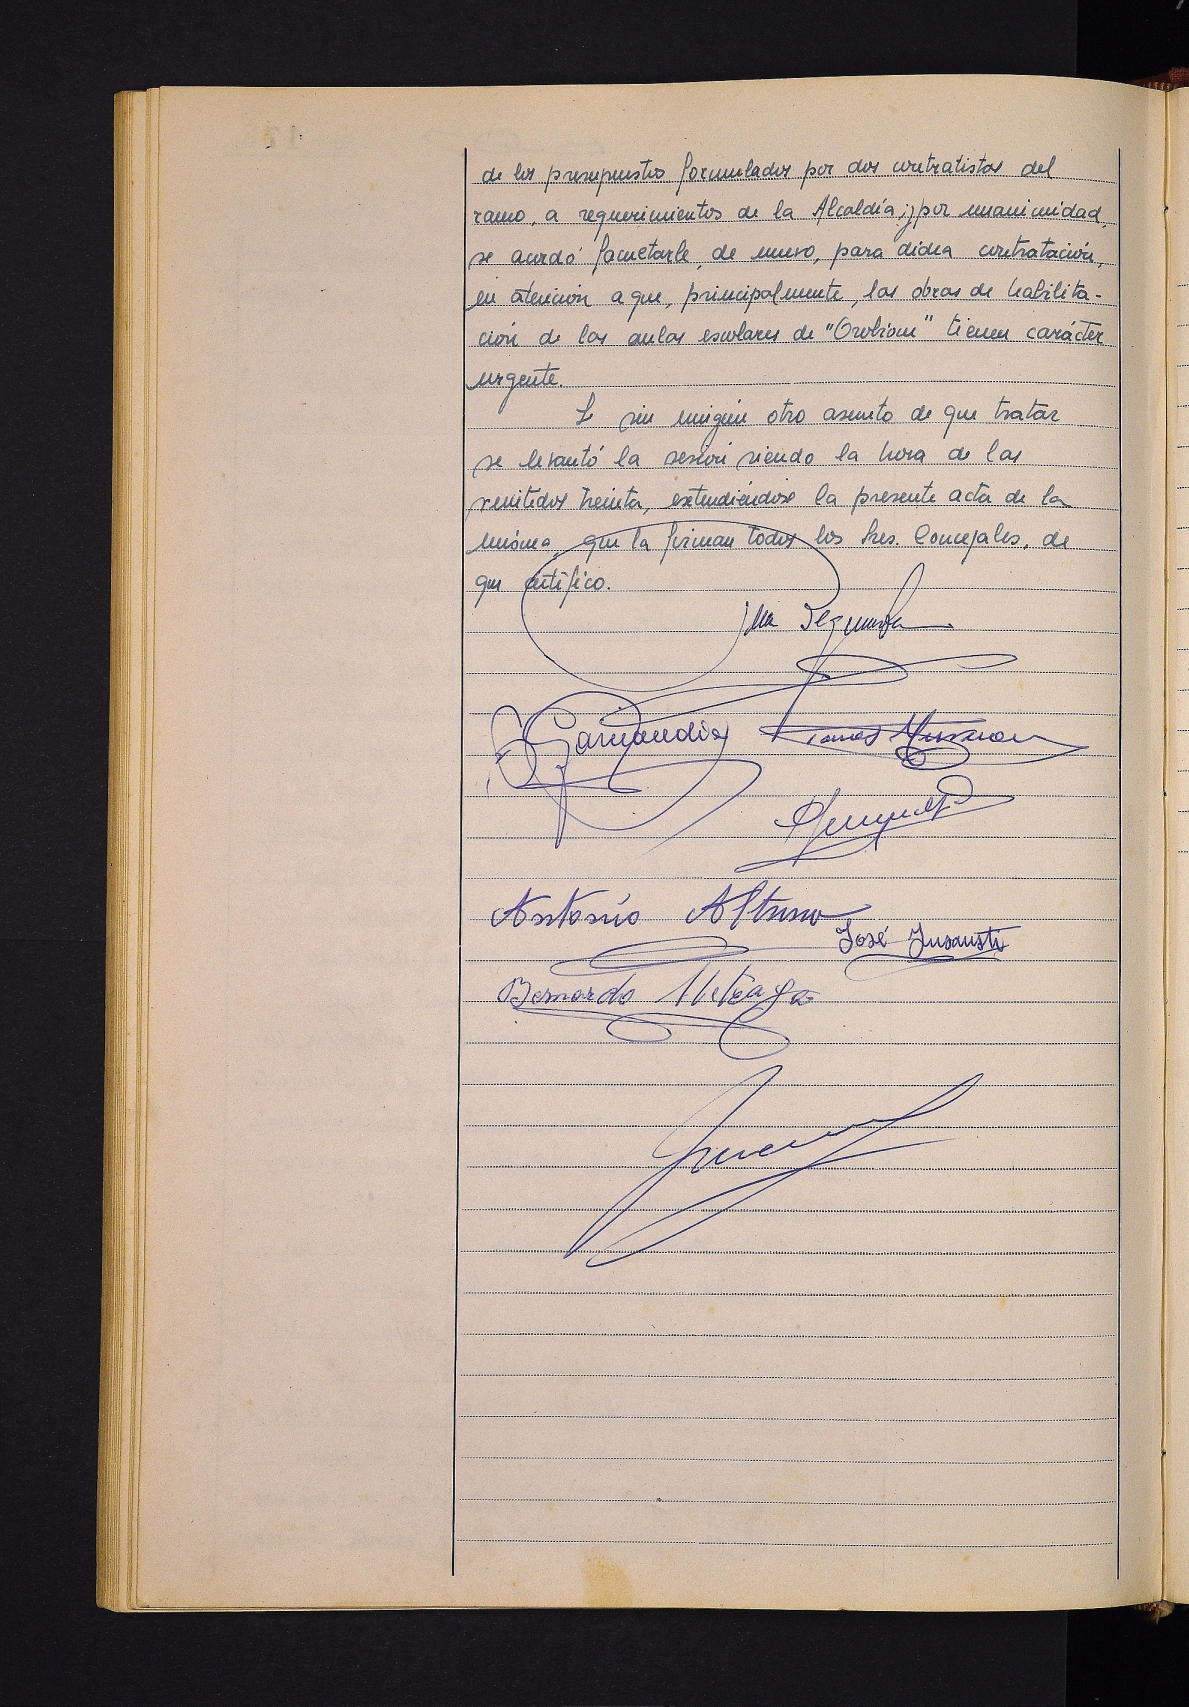 de los presupuestos formulados por dos contratistas del
ramo, a requerimientos de la Alcaldía; y por unanimidad,
se acordó facultarle, de nuevo, para dicha contratación,
en atención a que, principalmente, las obras de habilita-
ción de las aulas escolares de "Orobione" tienen carácter
urgente.
Y sin ningún otro asunto de que tratar
se levantó la sesión siendo la hora de las
veintidos treinta, extendiéndose la presente acta de la
misma, que la firman todos los Sres. Concejales, de
que certifico.
Garmendia
Tomas
Antonio Altuna
José Insausti
Bernardo Aleteaga